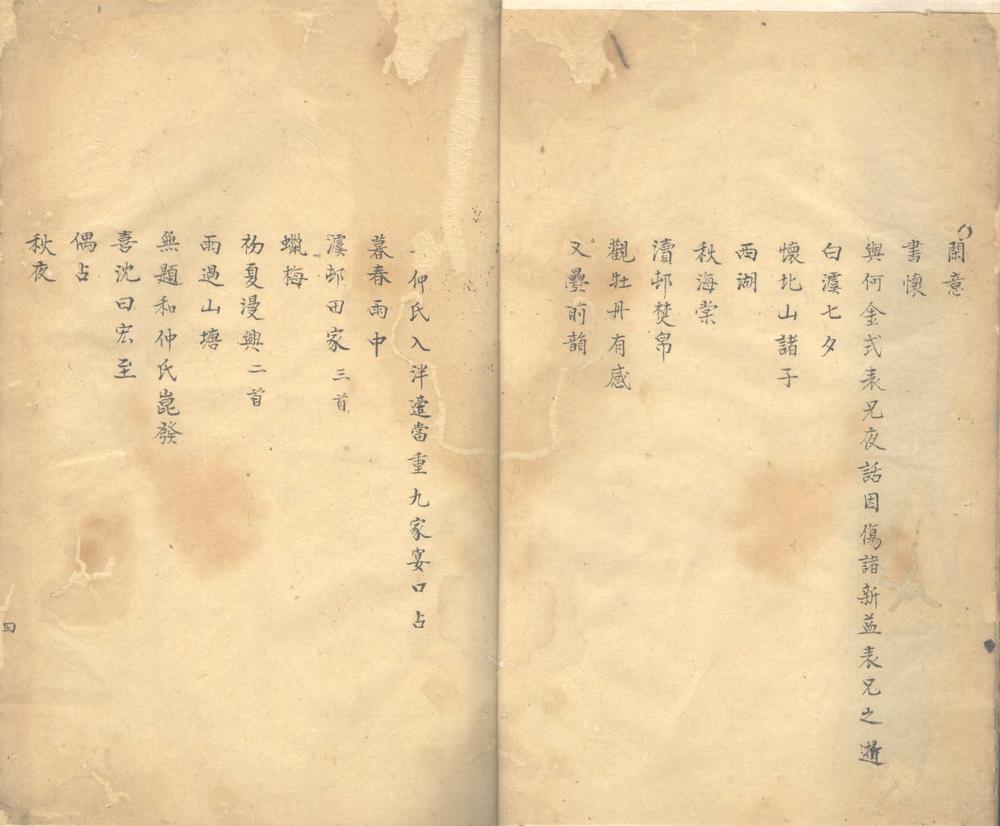 閨意
書懷
與何金式表兄夜話因傷諸新益表兄之逝
白瀀七夕
懷北山諸子
西湖
秋海棠
瀆邨焚帛
觀牡丹有感
又疊前韻
仲氏入泮遶當重九家宴口占
暮春雨中
瀀邨田家三首
蠟梅
初夏漫興二首
雨過山塘
無題和仲氏崑發
喜沈曰宏至
偶占
秋夜
四